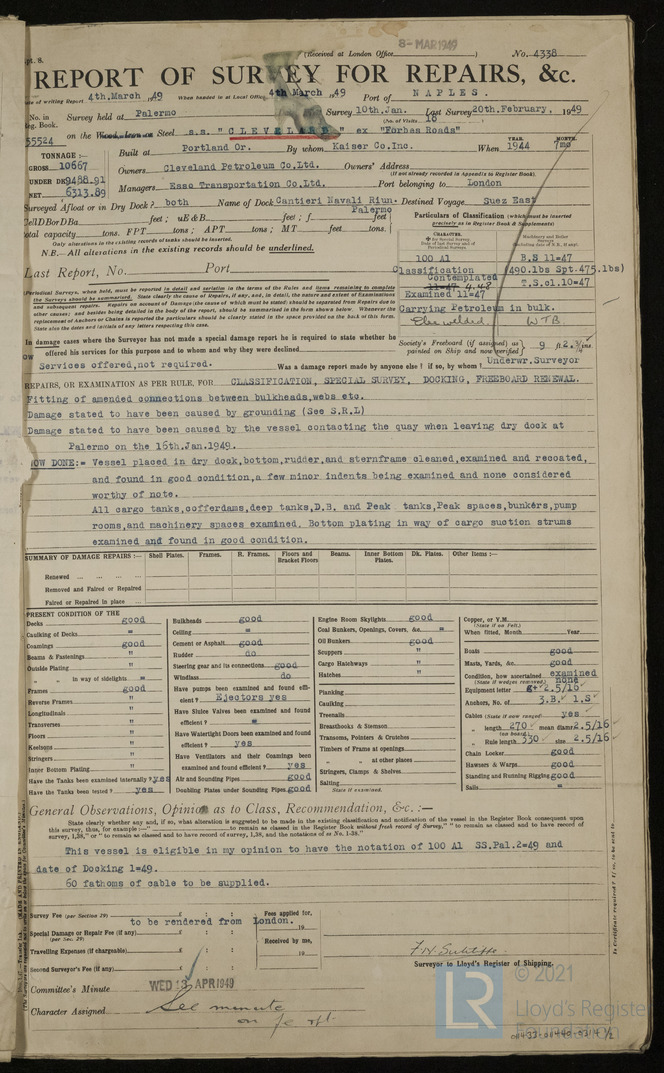 8-MAR1949
pt. 8.
(Received at London Office )
No. 4338
REPORT OF SURVEY FOR REPAIRS, &c.
ate of writing Report 4th.March 1949 When handed in at Local Office 4th March 1949 Port of NAPLES.
No. in Reg. Book. Survey held at Palermo Survey 10th.Jan. Last Survey 20th.February, 1949
(No. of Visits 16
55524 on the Steel s.s. "CLEVELAND" ex "Forbes Roads"
TONNAGE:—
Built at Portland Or. By whom Kaiser Co.Inc. When YEAR. 1944 MONTH. 7mo
GROSS 10667
Owners Cleveland Petroleum Co.Ltd. Owners' Address
UNDER DK 9488.91
(If not already recorded in Appendix to Register Book.)
NET 6313.89
Managers Esso Transportation Co.Ltd. Port belonging to London
Surveyed Afloat or in Dry Dock? both Name of Dock Cantieri Navali Riun. Palermo Destined Voyage Suez East
Cell DB or DBa feet; uE&B feet; f feet
total capacity tons. FPT tons; APT tons; MT tons.
Only alterations in the existing records of tanks should be inserted.
N.B.—All alterations in the existing records should be underlined.
Particulars of Classification (which must be inserted precisely as in Register Book & Supplements)
100 A1 B.S 11-47
Last Report, No. Port
Classification (490.lbs Spt.475.lbs)
Contemplated
11-47 4.48 T.S.cl.10=47
Examined 11=47
Carrying Petroleum in bulk.
Elec welded. WTB
(Periodical Surveys, when held, must be reported in detail and seriatim in the terms of the Rules and items remaining to complete the Surveys should be summarised. State clearly the cause of Repairs, if any, and, in detail, the nature and extent of Examinations and subsequent repairs. Repairs on account of Damage (the cause of which must be stated) should be separated from Repairs due to other causes; and besides being detailed in the body of the report, should be summarised in the form shown below. Whenever the replacement of Anchors or Chains is reported the particulars should be clearly stated in the space provided on the back of this form. State also the dates and initials of any letters respecting this case.
In damage cases where the Surveyor has not made a special damage report he is required to state whether he offered his services for this purpose to whom and why they were declined
Society's Freeboard (if assigned) as painted on Ship and now verified 9 ft. 2.¾ ins
Services offered,not required. Was a damage report made by anyone else? if so, by whom? Underwr.Surveyor
REPAIRS, OR EXAMINATION AS PER RULE, FOR CLASSIFICATION, SPECIAL SURVEY, DOCKING, FREEBOARD RENEWAL.
Fitting of amended connections between bulkheads,webs etc.
Damage stated to have been caused by grounding (See S.R.L)
Damage stated to have been caused by the vessel contacting the quay when leaving dry dock at
Palermo on the 16th.Jan.1949.
NOW DONE:= Vessel placed in dry dock,bottom,rudder,and sternframe cleaned,examined and recoated,
and found in good condition,a few minor indents being examined and none considered
worthy of note.
All cargo tanks,cofferdams,deep tanks,D.B. and Peak tanks,Peak spaces,bunkers,pump
rooms,and machinery spaces examined. Bottom plating in way of cargo suction strums
examined and found in good condition.
SUMMARY OF DAMAGE REPAIRS:— Shell Plates. Frames. R. Frames. Floors and Bracket Floors Beams. Inner Bottom Plates. Dk. Plates. Other Items:—
Renewed ... ... ... ...
Removed and Faired or Repaired
Faired or Repaired in place ...
PRESENT CONDITION OF THE
Decks good
Caulking of Decks =
Coamings good
Beams & Fastenings "
Outside Plating "
" " in way of sidelights =
Frames good
Reverse Frames "
Longitudinals "
Transverses "
Floors "
Keelsons "
Stringers "
Inner Bottom Plating "
Have the Tanks been examined internally? yes
Have the Tanks been tested? yes
Bulkheads good
Ceiling =
Cement or Asphalt good
Rudder do
Steering gear and its connections good
Windlass do
Have pumps been examined and found efficient? Ejectors yes
Have Sluice Valves been examined and found efficient? =
Have Watertight Doors been examined and found efficient? yes
Have Ventilators and their Coamings been examined and found efficient? yes
Air and Sounding Pipes good
Doubling Plates under Sounding Pipes good
Engine Room Skylights good
Coal Bunkers, Openings, Covers, &c. =
Oil Bunkers good
Scuppers "
Cargo Hatchways "
Hatches "
Planking
Caulking
Treenails
Breasthooks & Stemson
Transoms, Pointers & Crutches
Timbers of Frame at openings
" " at other places
Stringers, Clamps & Shelves
Salting
State if examined.
Copper, or Y.M.
(State if on Felt.)
When fitted, Month Year
Boats good
Masts, Yards, &c. good
Condition, how ascertained examined
(State if wedges removed) none
Equipment letter g+ 2.5/16
Anchors, No. of 3.B. 1.S
Cables (State if now ranged) yes
" length 270 mean diamr. 2.5/16
(on board)
" Rule length 330 size 2.5/16
Chain Locker good
Hawsers & Warps good
Standing and Running Rigging good
Sails =
General Observations, Opinion as to Class, Recommendation, &c. :—
State clearly whether any and, if so, what alteration is suggested to be made in the existing classification and notification of the vessel in the Register Book consequent upon
this survey, thus, for example:—" to remain as classed in the Register Book without fresh record of Survey," " to remain as classed and to have record of
survey, 1,38," or " to remain as classed and to have record of survey, 1,38, and the notations of ss No. 1-38."
This vessel is eligible in my opinion to have the notation of 100 A1 SS.Pal.2=49 and
date of Docking 1=49.
60 fathoms of cable to be supplied.
Survey Fee (per Section 29) £ : : Fees applied for,
to be rendered from London. 19
Special Damage or Repair Fee (if any) £ : :
(per Sec. 29)
Received by me,
Travelling Expenses (if chargeable) £ : : 19
Second Surveyor's Fee (if any) £ : :
Surveyor to Lloyd's Register of Shipping.
Committee's Minute WED 13 APR1949
Character Assigned See minute
on fe rpt.
© 2021
LR
Lloyd's Register
Foundation